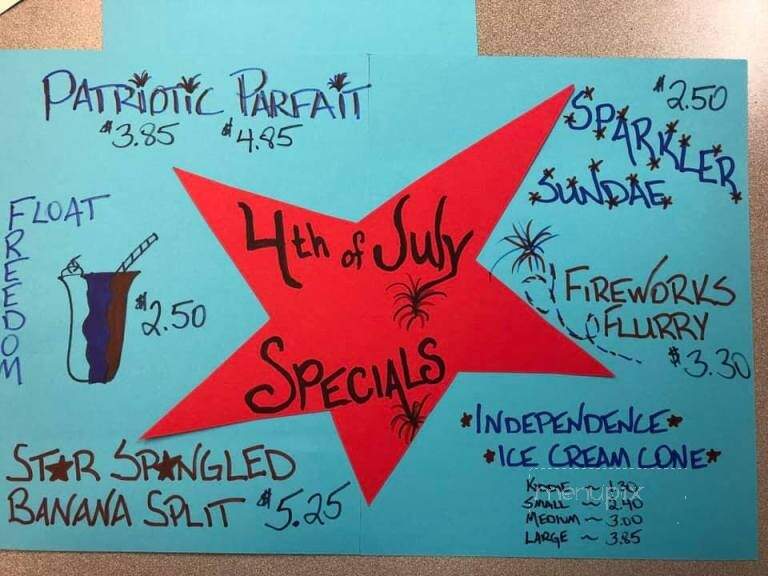 PATRIOTIC PARFAIT
$3.85 $4.85
$2.50
SPARKLER
SUNDAE
FREEDOM
FLOAT
$2.50
4th of July
SPECIALS
FIREWORKS
FLURRY
$3.30
STAR SPANGLED
BANANA SPLIT $5.25
*INDEPENDENCE*
*ICE CREAM CONE*
KIDDIE ~ 1.30
SMALL ~ 2.40
MEDIUM ~ 3.00
LARGE ~ 3.85
menupix